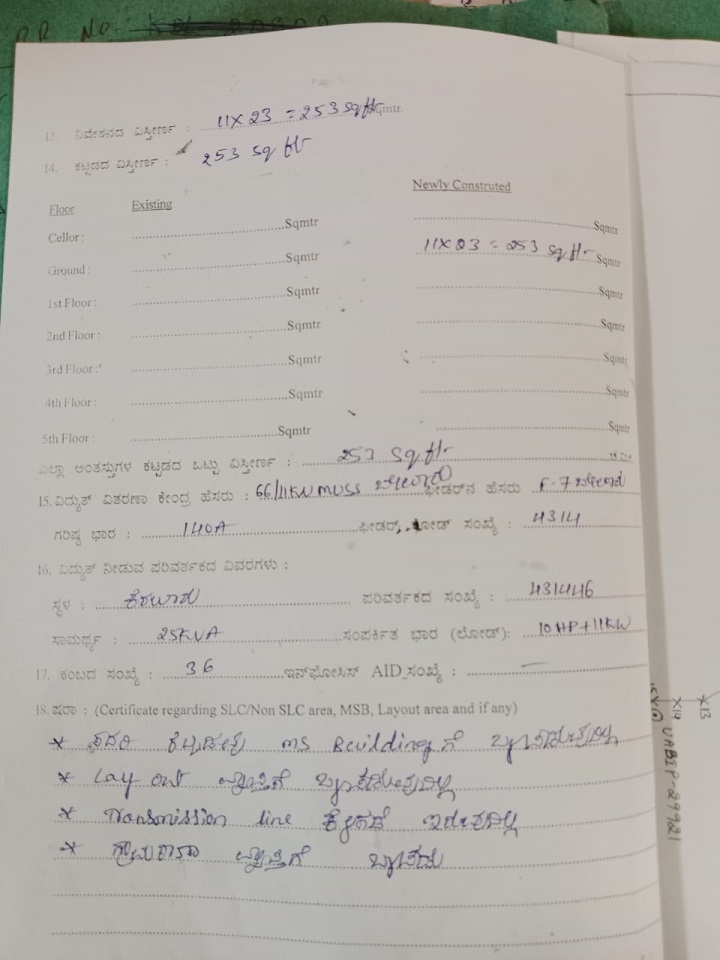 RR No.
13. ನಿವೇಶನದ ವಿಸ್ತೀರ್ಣ : 11 X 23 = 253 sq ft Sqmtr.
14. ಕಟ್ಟಡದ ವಿಸ್ತೀರ್ಣ : 253 sq ft
Floor Existing Newly Construted
Cellor : Sqmtr Sqmtr
Ground : Sqmtr 11X23 = 253 sq ft Sqmtr
1st Floor : Sqmtr Sqmtr
2nd Floor : Sqmtr Sqmtr
3rd Floor : Sqmtr Sqmtr
4th Floor : Sqmtr Sqmtr
5th Floor : Sqmtr Sqmtr
ಎಲ್ಲಾ ಅಂತಸ್ತುಗಳ ಕಟ್ಟಡದ ಒಟ್ಟು ವಿಸ್ತೀರ್ಣ : 253 sq ft
15. ವಿದ್ಯುತ್ ವಿತರಣಾ ಕೇಂದ್ರ ಹೆಸರು : 66/11KV MUSS ಫೀಡರ್‌ನ ಹೆಸರು F-7
ಗರಿಷ್ಠ ಭಾರ : 140A ಫೀಡರ್ ಕೋಡ್ ಸಂಖ್ಯೆ : 4314
16. ವಿದ್ಯುತ್ ನೀಡುವ ಪರಿವರ್ತಕದ ವಿವರಗಳು :
ಸ್ಥಳ : ಪರಿವರ್ತಕದ ಸಂಖ್ಯೆ : 431446
ಸಾಮರ್ಥ್ಯ : 25KVA ಸಂಪರ್ಕಿತ ಭಾರ (ಲೋಡ್): 10 HP + 11KW
17. ಕಂಬದ ಸಂಖ್ಯೆ : 36 ಇನ್‌ಫೋಸಿಸ್ AID ಸಂಖ್ಯೆ : —
18. ಷರಾ : (Certificate regarding SLC/Non SLC area, MSB, Layout area and if any)
* ಸದರಿ ಕಟ್ಟಡವು MS Building ಗೆ
* Lay out ವ್ಯಾಪ್ತಿಗೆ
* Transmission line ಕೆಳಗಡೆ ಇರುವುದಿಲ್ಲ
* ವ್ಯಾಪ್ತಿಗೆ
X13
X14